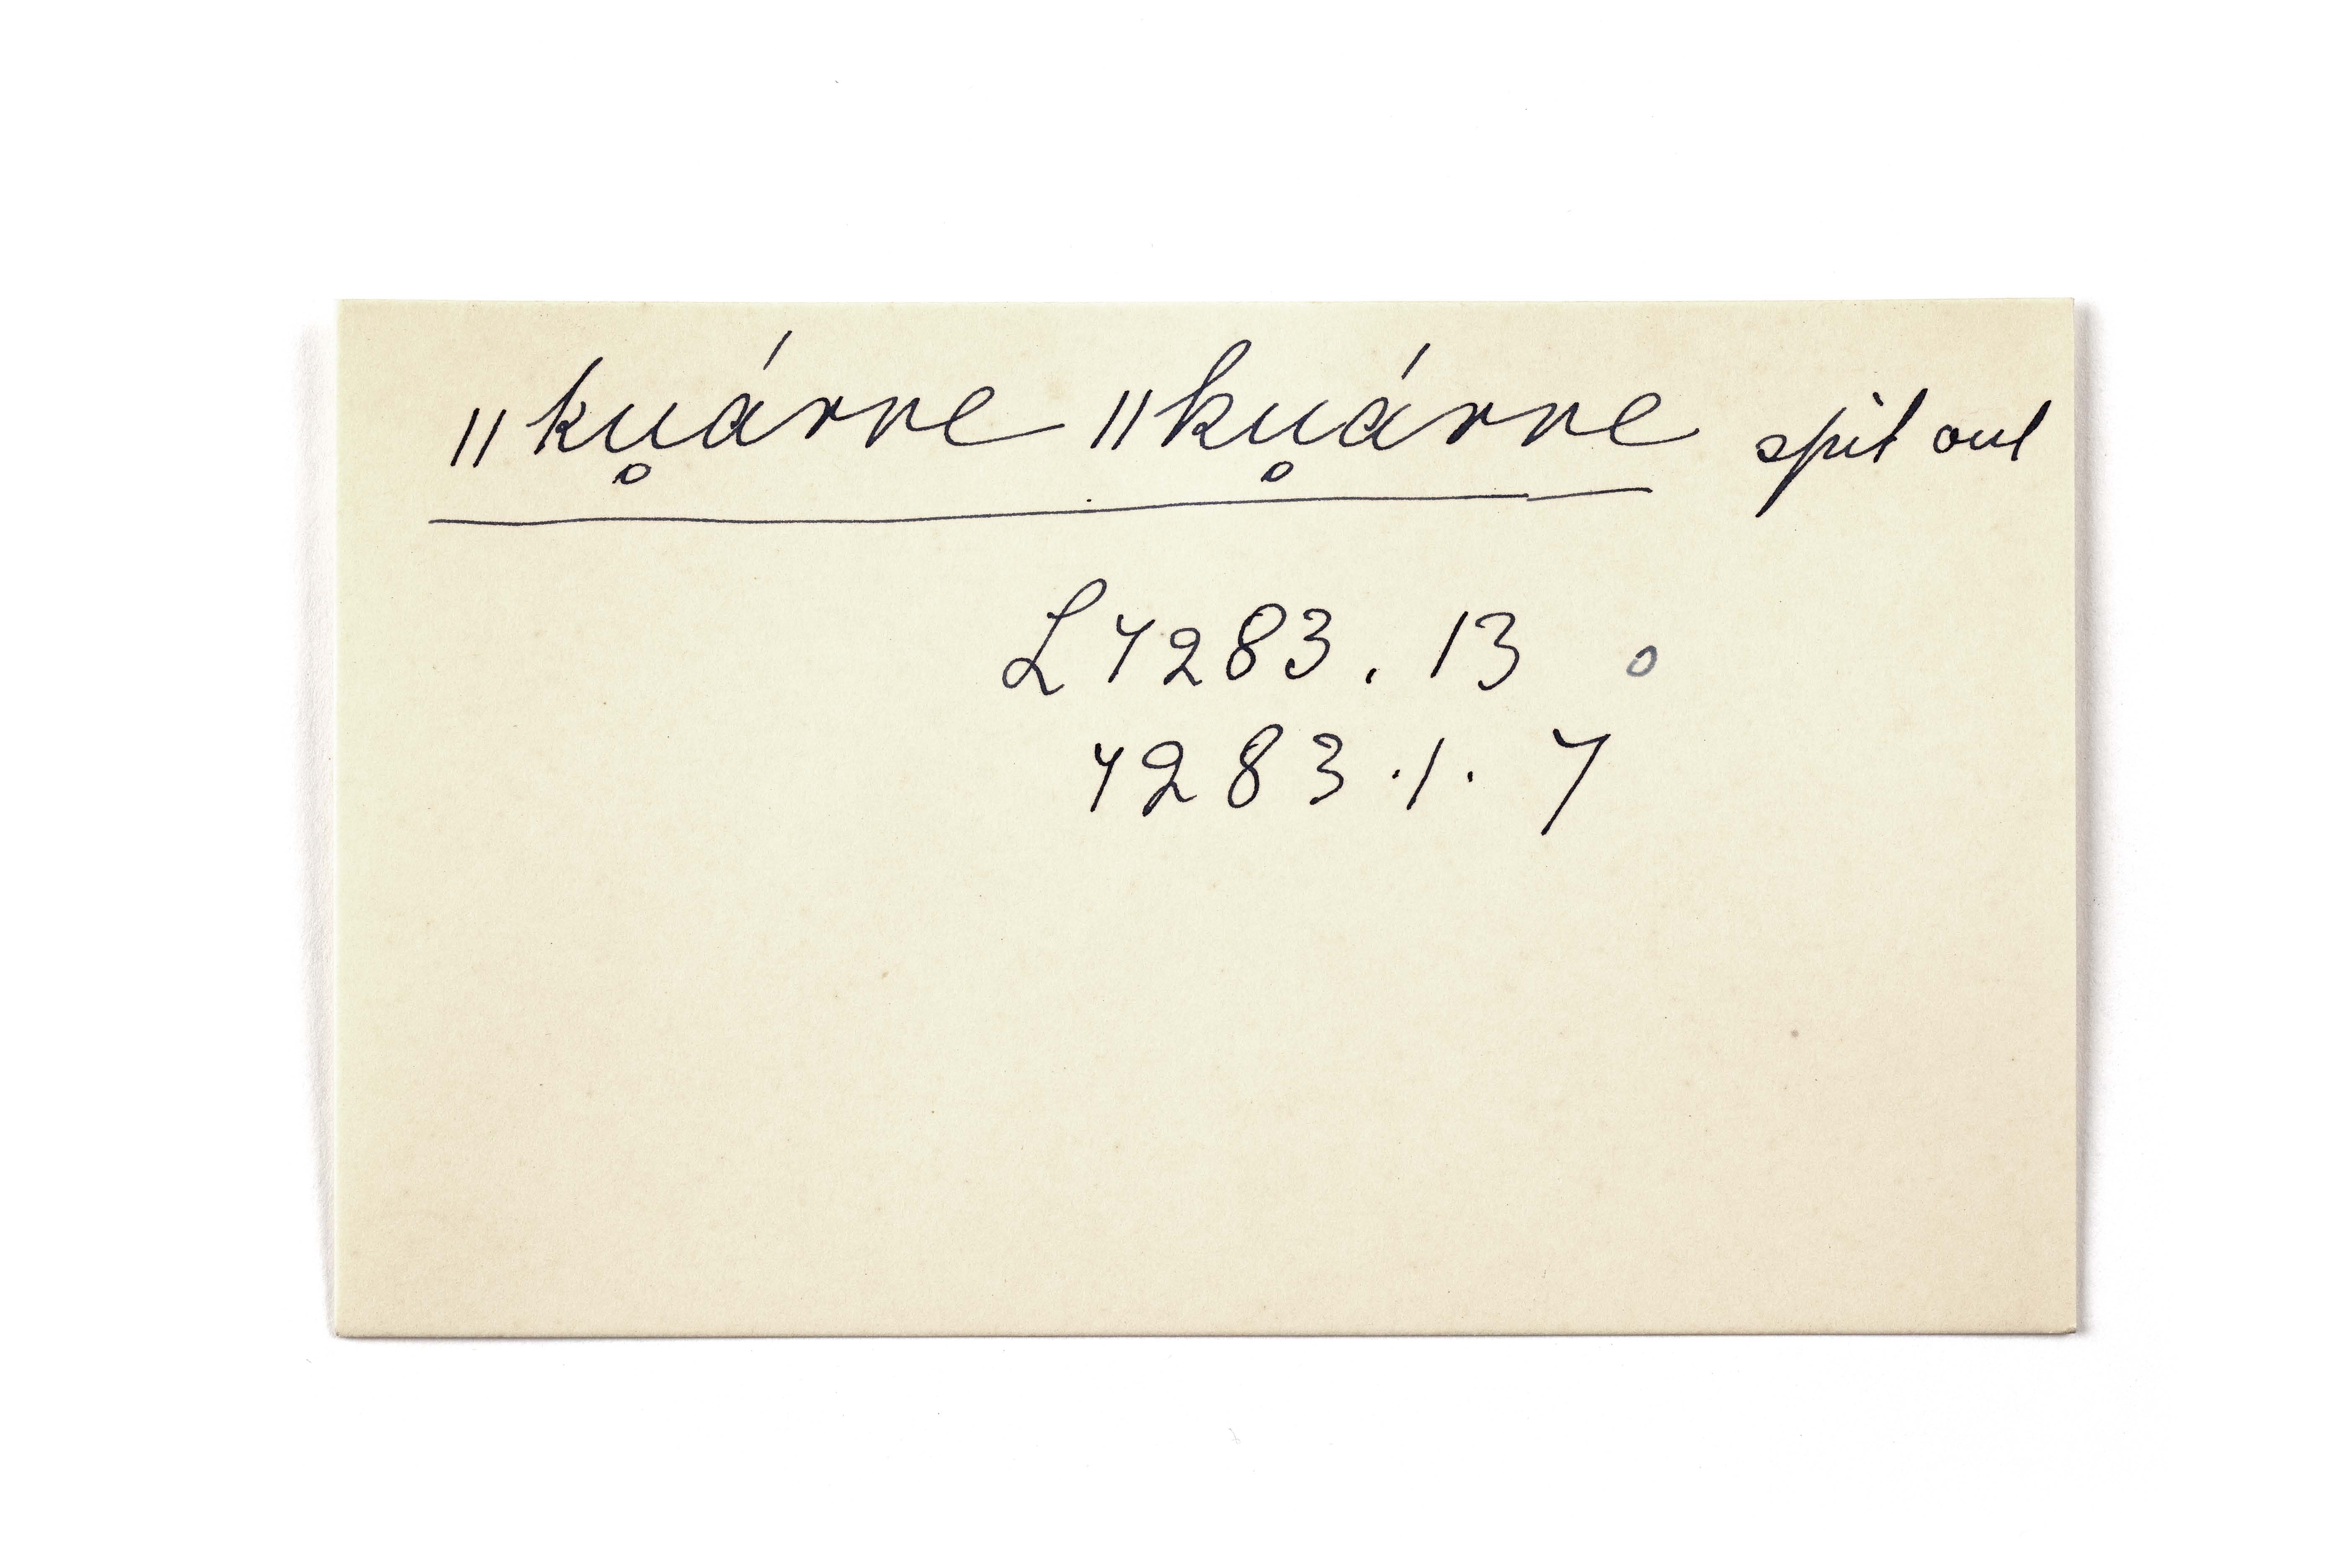 ǁku̥árre ǁku̥árre spit out
L 4283. 13 o
4283.1. 7